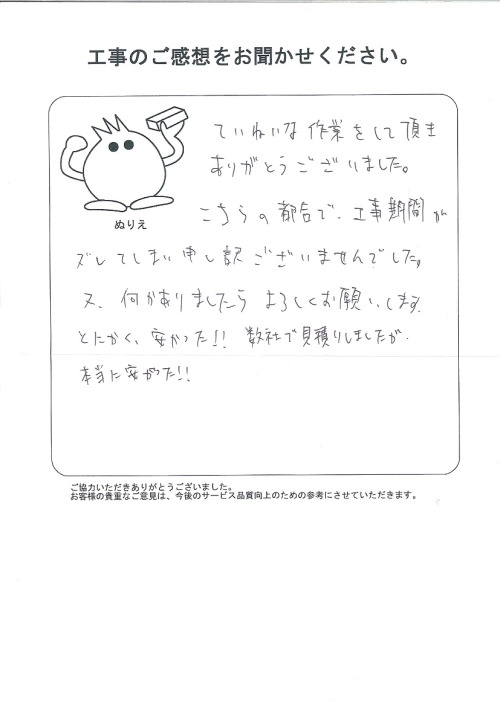 工事のご感想をお聞かせください。
ていねいな作業をして頂き
ありがとうございました。
ぬりえ
こちらの都合で、工事期間が
ズレてしまい申し訳ございませんでした。
又、何かありましたらよろしくお願いします。
とにかく、安かった!! 数社で見積りしましたが、
本当に安かった!!
ご協力いただきありがとうございました。
お客様の貴重なご意見は、今後のサービス品質向上のための参考にさせていただきます。